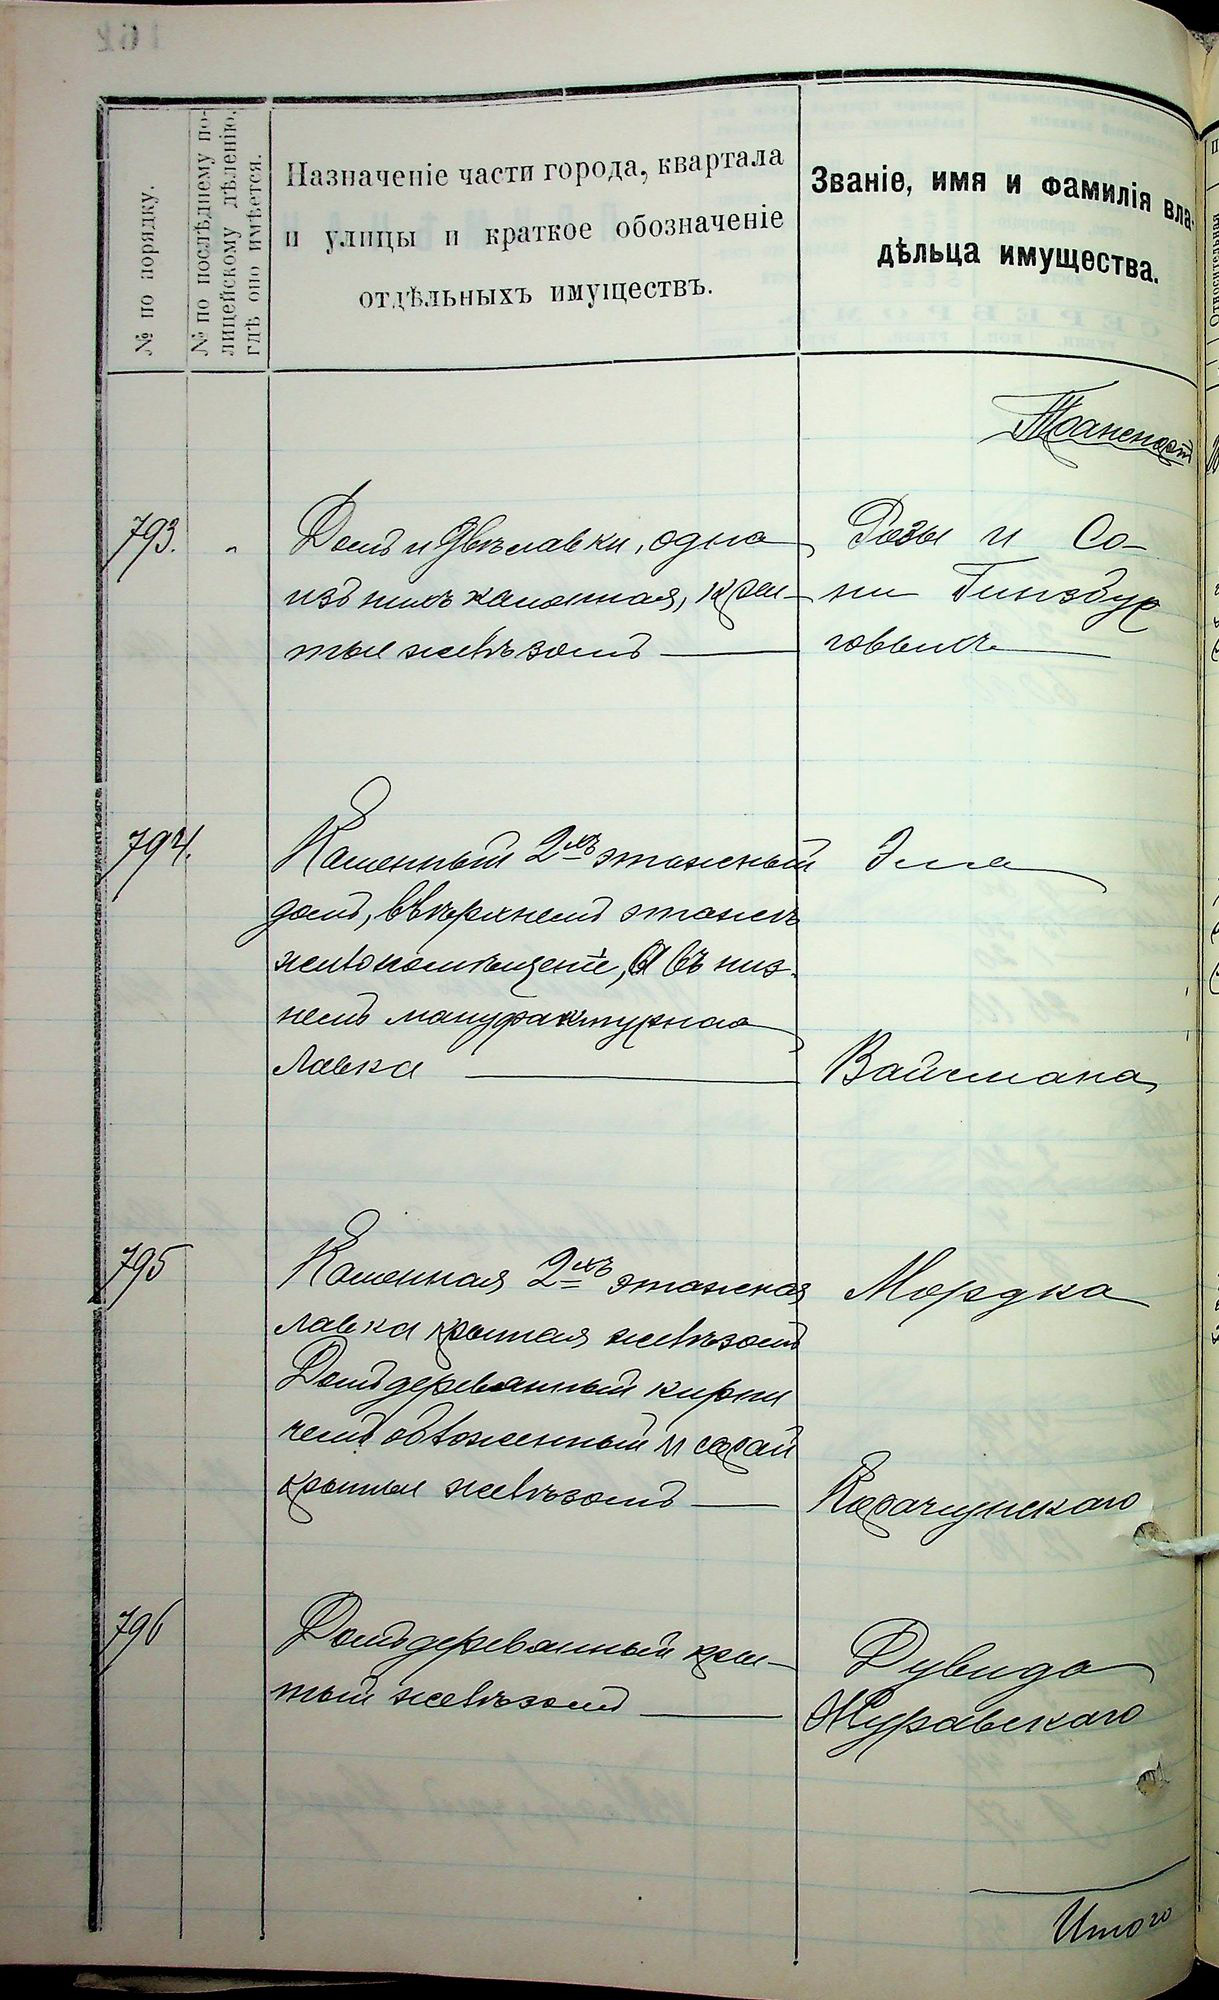 № по порядку.
№ по послѣднему по-
лицейскому дѣленію,
гдѣ оно имѣется.
Назначеніе части города, квартала
и улицы и краткое обозначеніе
отдѣльныхъ имуществъ.
Званіе, имя и фамилія вла-
дѣльца имущества.
Транспорт
793. "
Домъ и двѣ лавки, одна
изъ нихъ каменная, кры-
тыя желѣзомъ
Розы и Со-
ни Гинзбур
говыхъ
794.
Каменный 2хъ этажный
домъ, в верхнемъ этажѣ
жилопомѣщеніе, а въ ниж-
немъ мануфактурная
лавка
Эля
Вайсмана
795
Каменная 2хъ этажная
лавка крытая желѣзомъ
Домъ деревянный кирпи
чемъ обложенный и сарай
крытыя желѣзомъ
Мордка
Корачунскаго
796
Домъ деревянный кры-
тый желѣзомъ
Дувида
Журавскаго
Итого